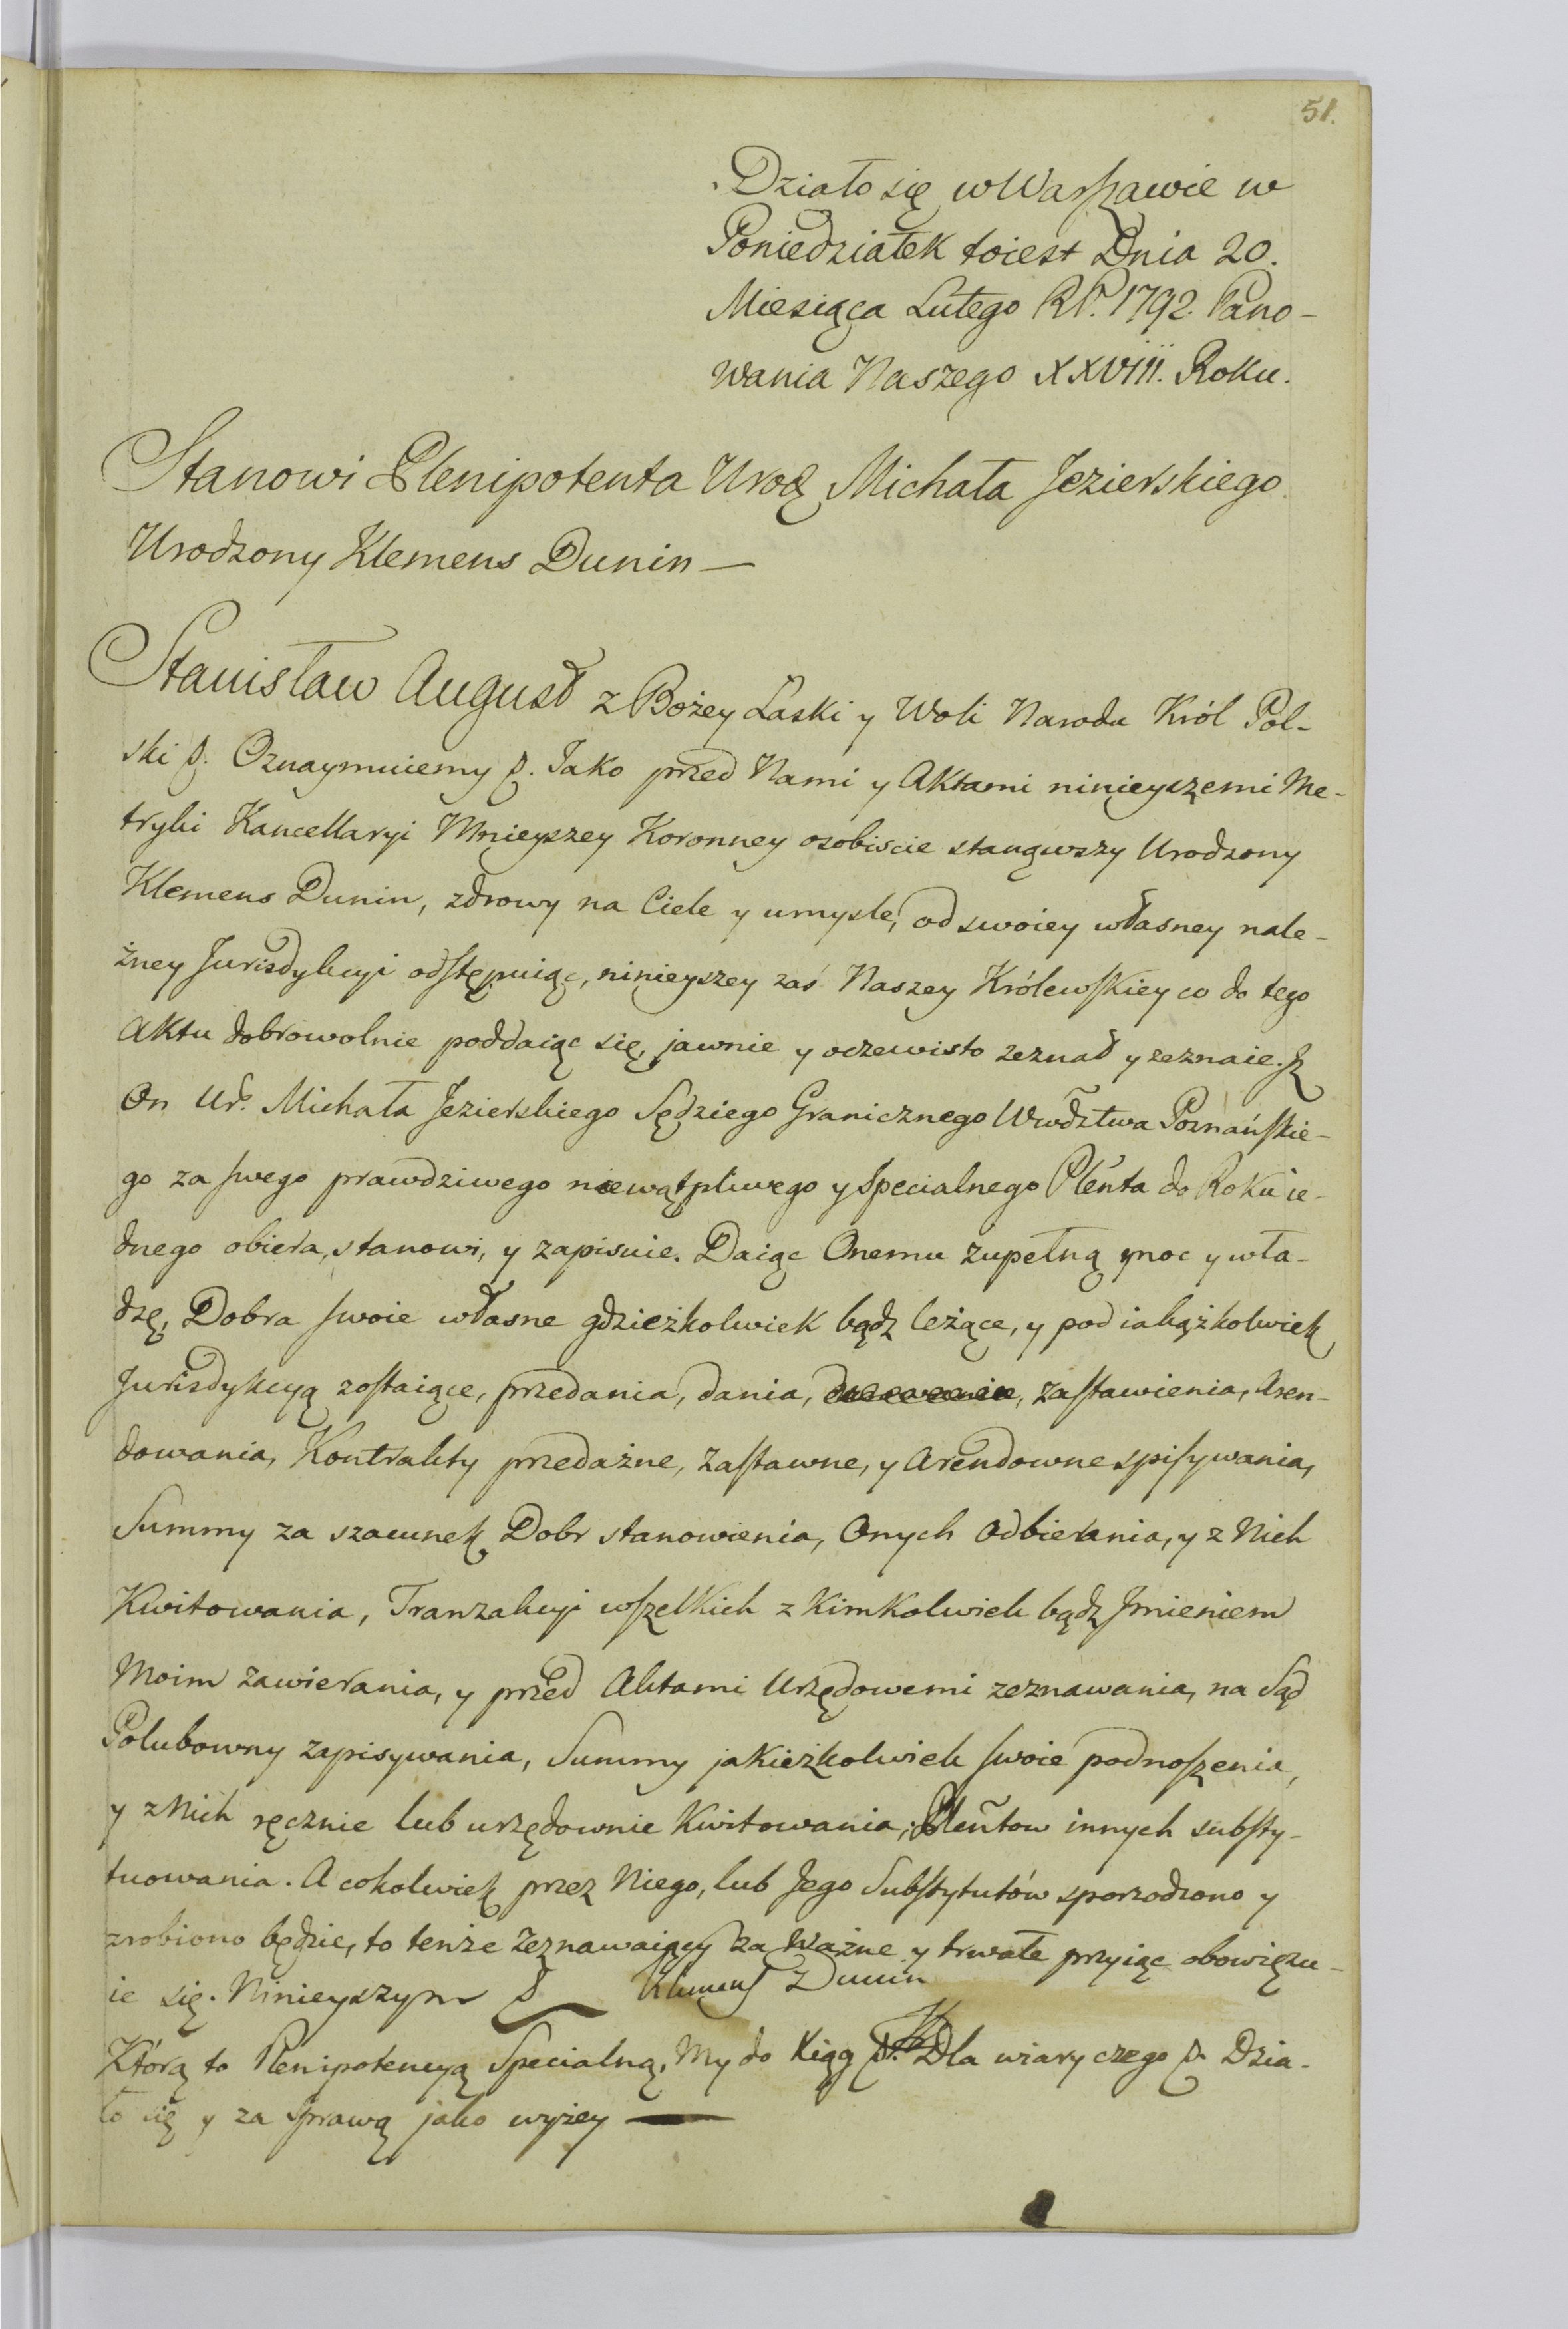 51.
Działo się w Warszawie w
Poniedziałek toiest Dnia 20.
Miesiąca Lutego RP. 1792. Pano-
wania Naszego XXVIII. Roku.
Stanowi Plenipotenta Urodz Michała Jezierskiego
Urodzony Klemens Dunin —
Stanisław August z Bożey Łaski y Woli Narodu Król Pol-
ski &. Oznaymuiemy &. Jako przed Nami y Aktami ninieyszemi Me-
tryki Kancellaryi Mnieyszey Koronney osobiscie stanąwszy Urodzony
Klemens Dunin, zdrowy na Ciele y umysle, od swoiey własney nale-
żney Jurisdykcyi odstępuiąc, ninieyszey zaś Naszey Królewskiey co do tego
Aktu dobrowolnie poddaiąc się, jawnie y oczewisto zeznał y zeznaie. Jż
On Ur. Michała Jezierskiego Sędziego Granicznego Wwdztwa Poznańskie-
go za swego prawdziwego niewątpliwego y specialnego Plenta do Roku ie-
dnego obiera, stanowi, y zapisuie. Daiąc Onemu zupełną moc y wła-
dzę, Dobra swoie własne gdzieżkolwiek bądz leżące, y pod iakążkolwiek
Jurisdykcyą zostaiące, przedania, dania, zastawienia, Aren-
dowania, Kontrakty przedażne, zastawne, y Arendowne spisywania,
Summy za szacunek Dobr stanowienia, Onych odbierania, y z Nich
Kwitowania, Tranzakcyi wszelkich z kimkolwiek bądz Jmieniem
Moim zawierania, y przed Aktami Urzędowemi zeznawania, na Sąd
Polubowny zapisywania, Summy jakieżkolwiek swoie podnoszenia,
y z Nich ręcznie lub urzędownie Kwitowania, Plentow innych substy-
tuowania. A cokolwiek przez Niego, lub Jego Substytutów sporzodzono y
zrobiono będzie, to tenże Zeznawaiący za Ważne y trwałe przyiąc obowięzu-
ie się. Ninieyszym & Klemens Dunin
Którą to Plenipotencyą Specialną, My do Xiąg &. Dla wiary czego &. Dzia-
ło się y za sprawą jako wyżey —